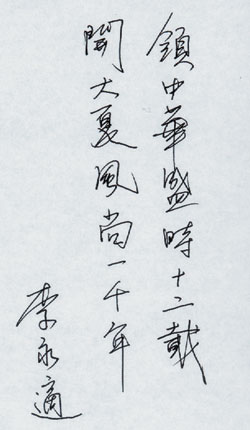 領中華盛時十二載
開大夏風尚一千年
李永適